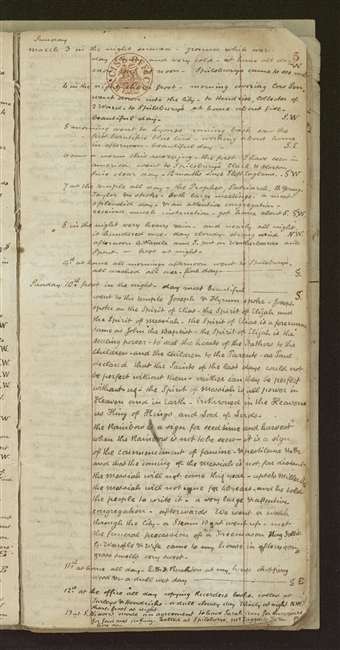 Sunday
March 3 in the night snowed - ground white over
day and very cold - at home all day W
noon - Spilsburys came to see me
4 in the night frost - morning
went down into the city - to Hendrix, Collector of
2 Ward - to Spilsburys at home about five -
beautiful day - S.W
5 morning went to Lyons coming back saw the
first beautiful blue bird - working about home
in afternoon - beautiful day - S.E.
6 saw a worm this morning - the first I have seen in
america went to Spilsburys Clark &
fair clear day - 12 months since I left England - S W
7 at the temple all day - the Prophet, Patriarch, B. Young
Taylor &c spoke - both large meetings - a most
splendid day - & an attentive congregation -
received much instruction - got home about 5. S.W
8 in the night very heavy rain - and nearly all night
& thundered once - day cloudy strong wind N.W.
afternoon G. Wardle and I put on Weatherboards and
- frost at night -
9th at home all morning afternoon went to Spilsburys,
all washed all over - fine day - S.
Sunday 10th frost in the night - day most beautiful S.
went to the temple Joseph & Hyrum spoke - Joseph
spoke on the Spirit of Elias - the Spirit of Elijah and
the Spirit of Messiah - the Spirit of Elias is a forerunner
same as John the Baptist - the Spirit of Elijah is the
sealing power - to seal the hearts of the Fathers to the
Children - and the Children to the Parents - as Paul
declared that the Saints of the last days could not
be perfect without them - neither can they be perfect
without us - the Spirit of Messiah is all power in
Heaven and in Earth - Enthroned in the Heavens
as King of Kings and Lord of Lords -
the Rainbow is a sign for seed time and harvest
when the Rainbow is not to be seen - it is a sign
of the commencement of famine - & pestilence &c &c
and that the coming of the messiah is not far distant -
the messiah will not come this year - upsets Miller
the messiah will not come for 40 years - and he told
the people to write it - a very large & attentive
congregation - afterwards We went a walk
through the city - a Steam Boat went up - met
the funeral procession of a Freemason King Follett
G. Wardle & Wife came to my house in afternoon
grass smells very sweet -
11th at home all day - E & I Rushton at my house chopping
wood &c a dull wet day S E
12th at the office all day copying Recorders books. called at
Turleys & Hendricks - a dull cloudy day N.W